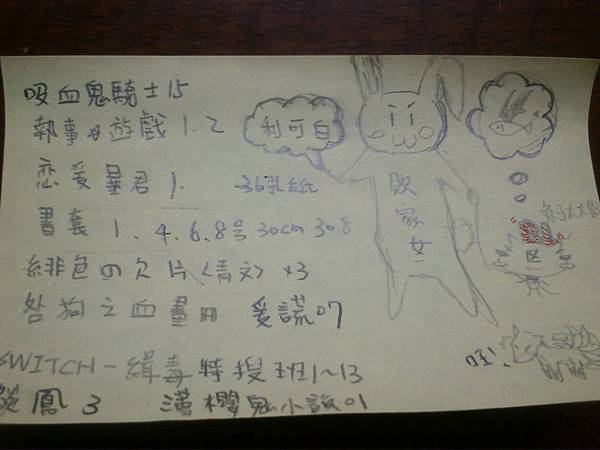 吸血鬼騎士15
執事の遊戲1.2
恋爱暴君1.
書套1.4.6.8号30cm 30.8
緋色の欠片<青文>×3
咎狗之血畫冊 爱謊07
SWITCH-緝毒特搜班1~13
鳳3 漢櫻鬼小說01
利可白
敗家女